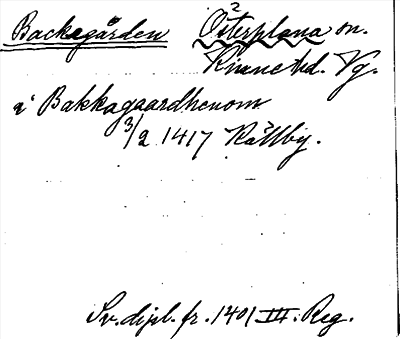 Backagården Österplana sn.
2
Kinne hd. Vg.
i Bakkagaardhenom
3/2 1417 Källby.
Sv. dipl. fr. 1401 III. Reg.